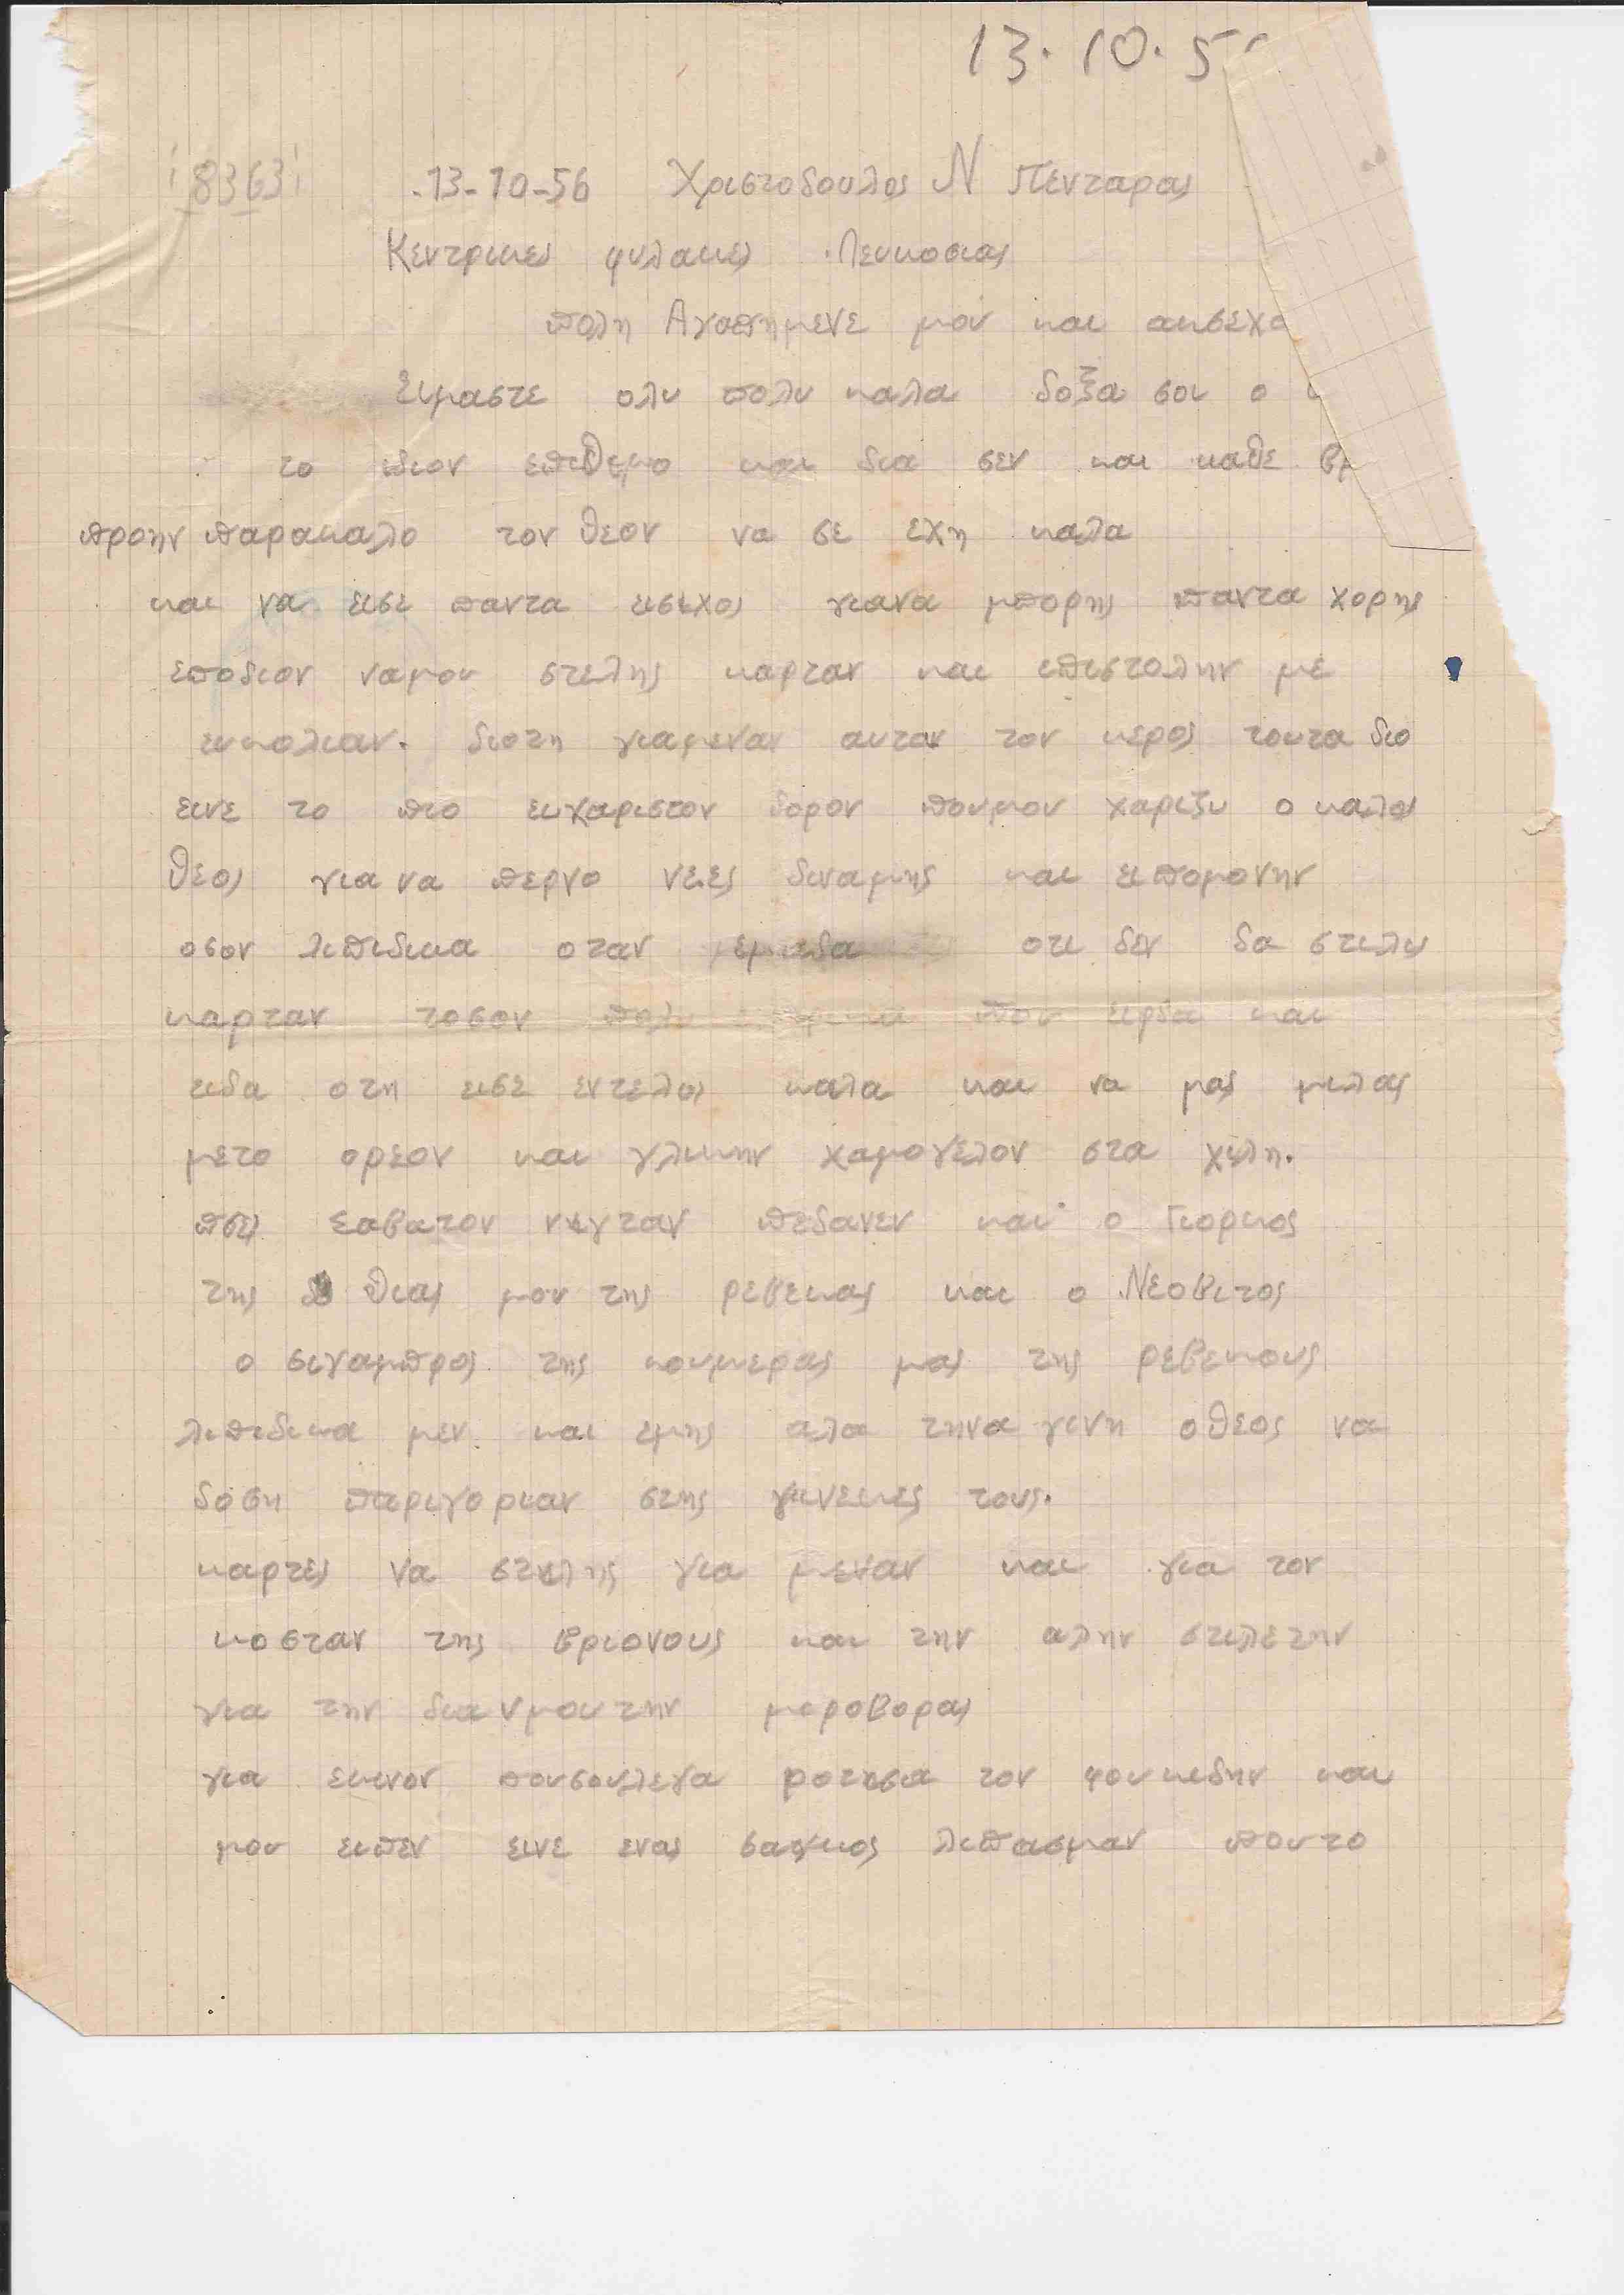 13.10.5
8363 .13-10-56 Χριστοδουλος Ν Πενταρας
Κεντρικες φυλακες Λευκοσιας
πολη Αγαπημενε μου και ακσεχα
Ειμαστε ολυ πολυ καλα δοξα σοι ο
το ιδιον επιθεμο και δια σεν και καθε βρ
προην παρακαλο τον θεον να σε εχη καλα
και να εισε παντα εισιχος γιανα μπορης παντα χορης
εποδιον ναμου στελης καρταν και επιστολην με
ευκολιαν. διοτη γιαμεναν αυταν τον κερος τουτα διο
εινε το πιο ευχαριστον δορον πουμου χαριζυ ο καλος
θεος για να περνο νεες δυναμης και ειπομονην
οσον λιπιδικα οταν οτι δεν δα στειλυ
καρταν τοσον πολυ που ειρδα και
ειδα οτη εισε εντελος καλα και να μας μιλας
μετο ορεον και γλικην χαμογελον στα χιλη.
πσες Σαβατον νιχταν πεδανεν και ο Γιορκος
της θιας μου της ρεβεκας και ο Νεοβιτος
ο σιγαμπρος της κουμερας μας της ρεβεκους
λιπιδικα μεν και εμης αλα τηνα γινη οθεος να
δοση παριγοριαν στης γινεκες τους.
καρτες να στειλης για μεναν και για τον
κοσταν της βριονους και την αλην στιλετην
για την διανμου την μαροβορας
για εκινον πουσουλεγα ροτισα τον φουκιδην και
μου ειπεν εινε ενας σακκος λιπασμαν πουτο